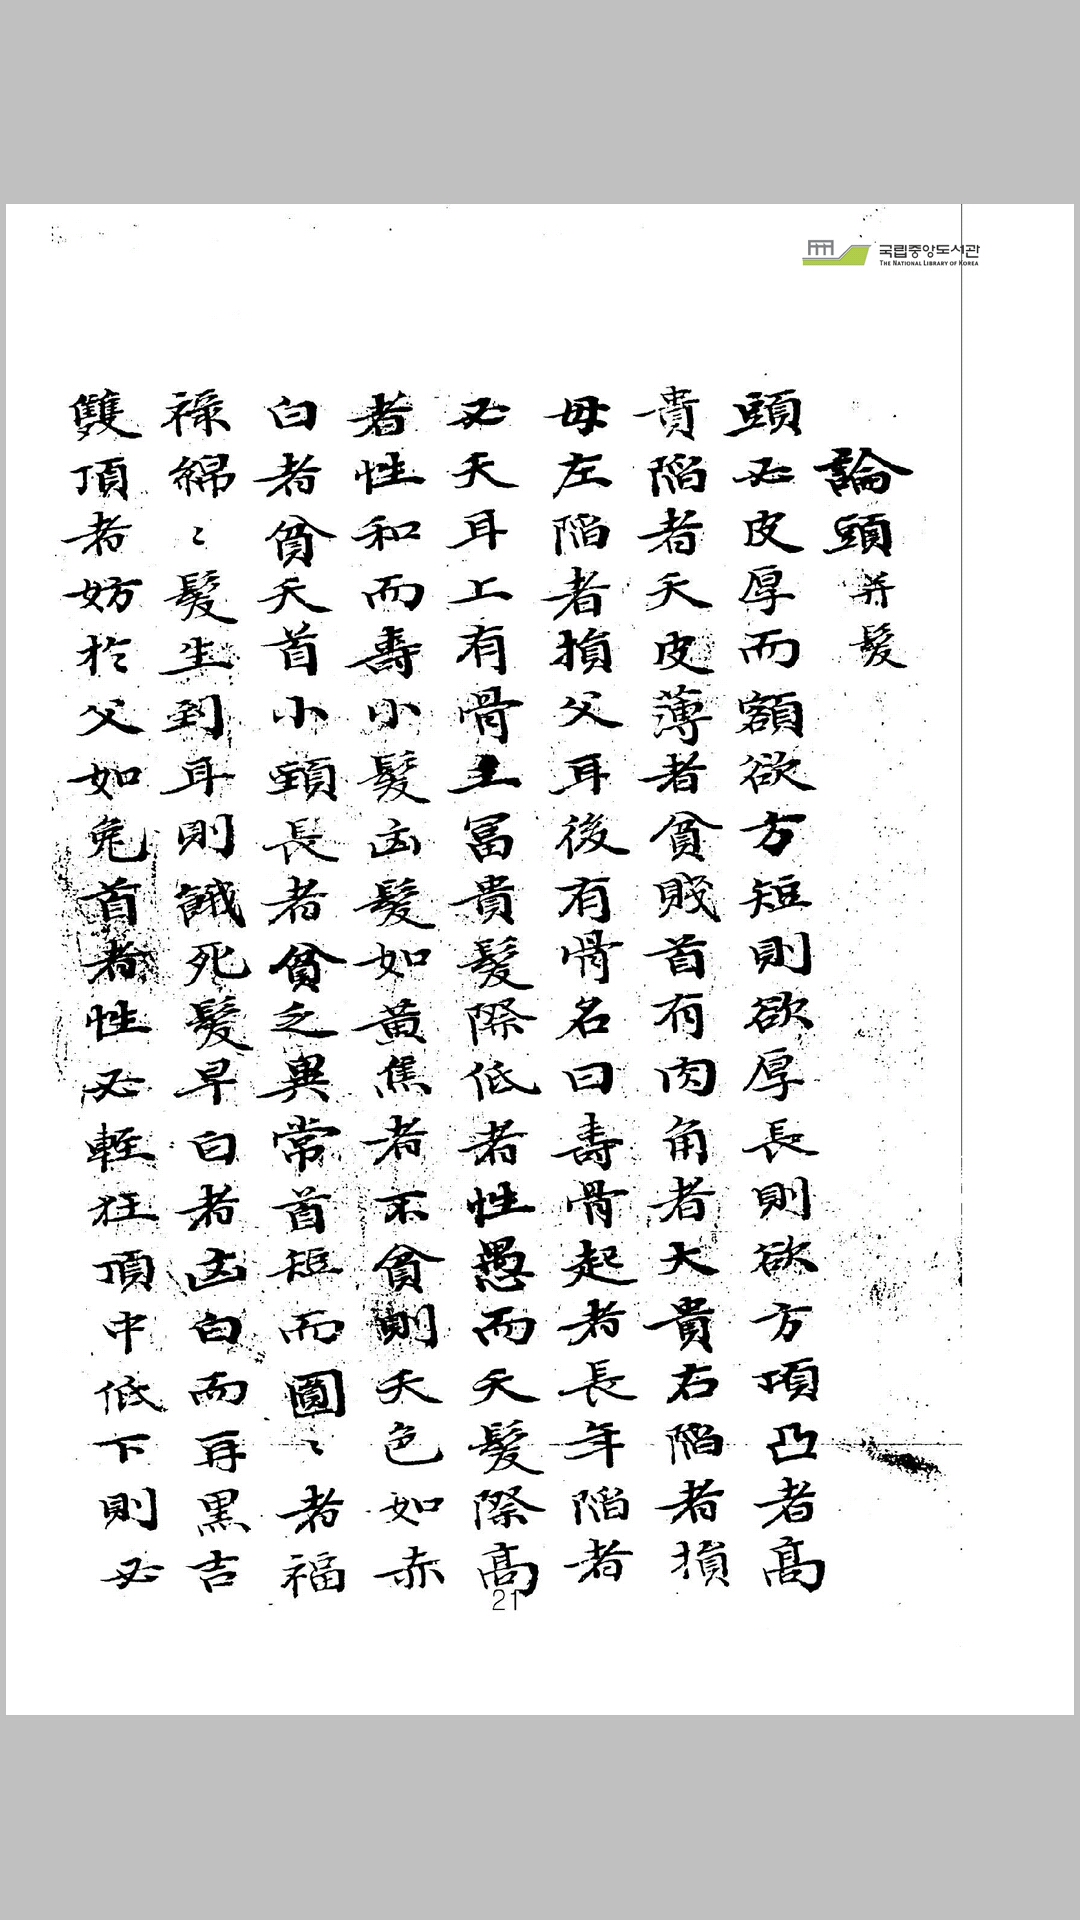 국립중앙도서관
THE NATIONAL LIBRARY OF KOREA
論頭 并髮
頭必皮厚而額欲方短則欲厚長則欲方項凸者高
貴陷者夭皮薄者貧賤首有肉角者大貴右陷者損
母左陷者損父耳後有骨名曰壽骨起者長年陷者
必夭耳上有骨主冨貴髮際低者性愚而夭髮際高
者性和而壽小髮凶髮如黄焦者不貧則夭色如赤
白者貧夭首小頸長者貧乏異常首短而圓〻者福
祿綿〻髮生到耳則餓死髮早白者凶白而再黒吉
雙頂者妨於父如兎首者性必輕狂頂中低下則必
21